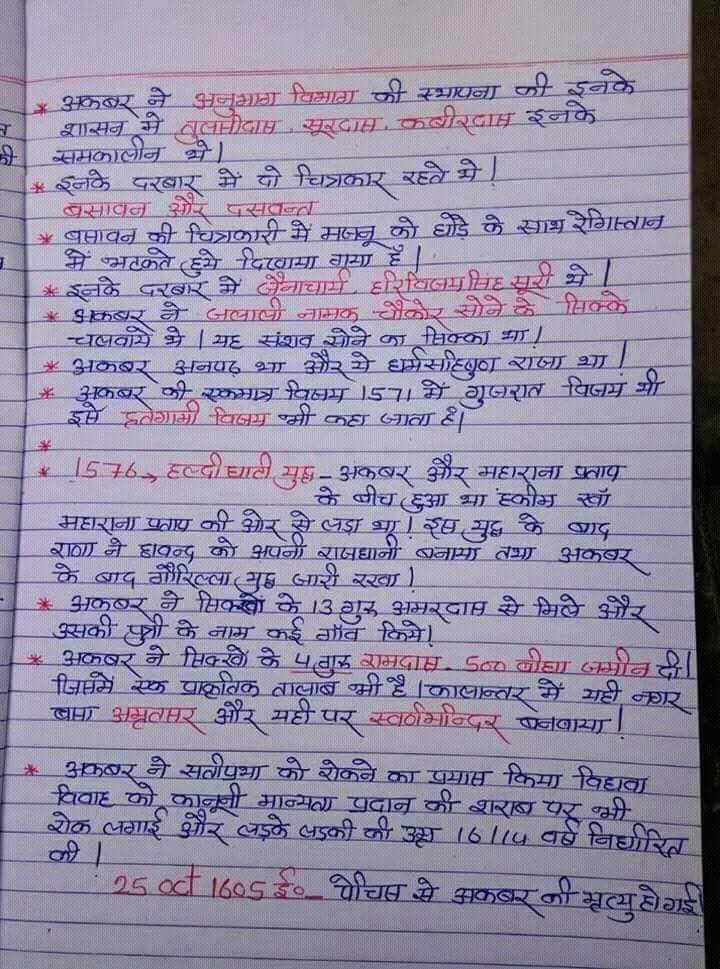 * अकबर ने अनुभाग विभाग की स्थापना की इनके
शासन में तुलसीदास, सूरदास, कबीरदास इनके
समकालीन थे।
* इनके दरबार में दो चित्रकार रहते थे!
बसावन और दसवन्त
* बसावन की चित्रकारी में मजनू को घोड़े के साथ रेगिस्तान
में भटकते हुये दिखाया गया है।
* इनके दरबार में जैनाचार्य, हरिविजय सिंह सूरी थे।
* अकबर ने जलाली नामक चौकोर सोने के सिक्के
चलवाये थे। यह संशव सोने का सिक्का था!
* अकबर अनपढ़ था और ये धर्मसहिषुण राजा था!
* अकबर की एकमात्र विजय 1571 में गुजरात विजय थी
इसे द्रुतगामी विजय भी कहा जाता है।
*
* 1576 → हल्दीघाटी युद्ध - अकबर और महाराना प्रताप
के बीच हुआ था हकीम खाँ
महाराना प्रताप की ओर से लड़ा था! इस युद्ध के बाद
राणा ने चावन्द को अपनी राजधानी बनाया तथा अकबर
के बाद गौरिल्ला युद्ध जारी रखा!
* अकबर ने सिक्खो के 13 गुरु अमरदास से मिले और
उसकी पुत्री के नाम कई गाँव किये।
* अकबर ने सिक्खो के 4 गुरु रामदास. 500 बीघा जमीन दी।
जिसमें एक प्राकृतिक तालाब भी है। कालान्तर में यही नगर
बसा अमृतसर और यही पर स्वर्णमन्दिर बनवाया!
* अकबर ने सतीप्रथा को रोकने का प्रयास किया विधवा
विवाह को कानूनी मान्यता प्रदान की शराब पर भी
रोक लगाई और लड़के लड़की की उम्र 16/14 वर्ष निर्धारित
की!
25 oct 1605 ई० - पेचिस से अकबर की मृत्यु हो गई
की